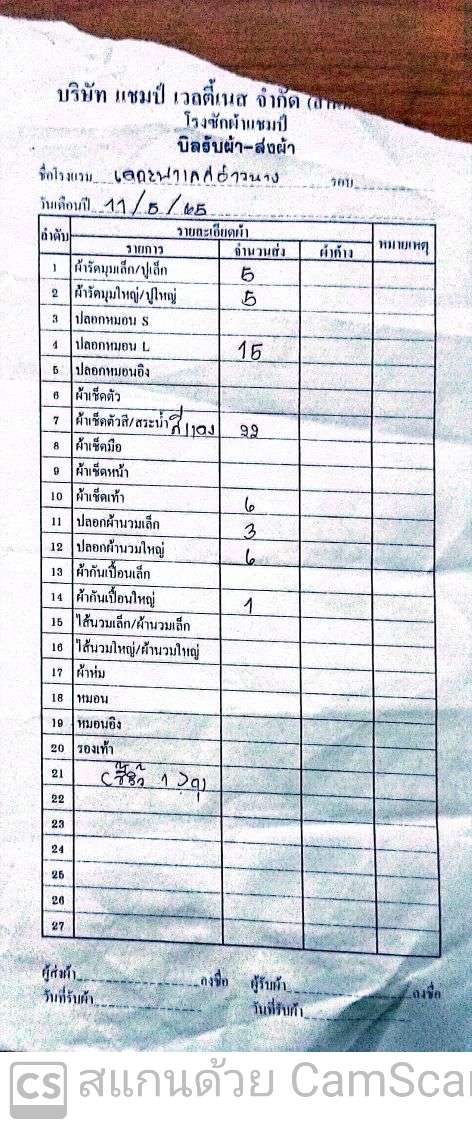 บริษัท แชมป์ เวลตี้เนส จำกัด
โรงซักผ้าแชมป์
บิลรับผ้า-ส่งผ้า
ชื่อโรงแรม รอบ
วันเดือนปี 11/5/65
ลำดับ รายละเอียดผ้า หมายเหตุ
รายการ จำนวนส่ง ผ้าค้าง
1 ผ้ารัดมุมเล็ก/ปูเล็ก 5
2 ผ้ารัดมุมใหญ่/ปูใหญ่ 5
3 ปลอกหมอน S
4 ปลอกหมอน L 15
5 ปลอกหมอนอิง
6 ผ้าเช็ดตัว
7 ผ้าเช็ดตัวสี/สระน้ำ สีทอง 22
8 ผ้าเช็ดมือ
9 ผ้าเช็ดหน้า
10 ผ้าเช็ดเท้า 6
11 ปลอกผ้านวมเล็ก 3
12 ปลอกผ้านวมใหญ่ 6
13 ผ้ากันเปื้อนเล็ก
14 ผ้ากันเปื้อนใหญ่ 1
15 ไส้นวมเล็ก/ผ้านวมเล็ก
16 ไส้นวมใหญ่/ผ้านวมใหญ่
17 ผ้าห่ม
18 หมอน
19 หมอนอิง
20 รองเท้า
21
22
23
24
25
26
27
ผู้ส่งผ้า ลงชื่อ ผู้รับผ้า ลงชื่อ
วันที่รับผ้า วันที่รับผ้า
CS สแกนด้วย CamScan